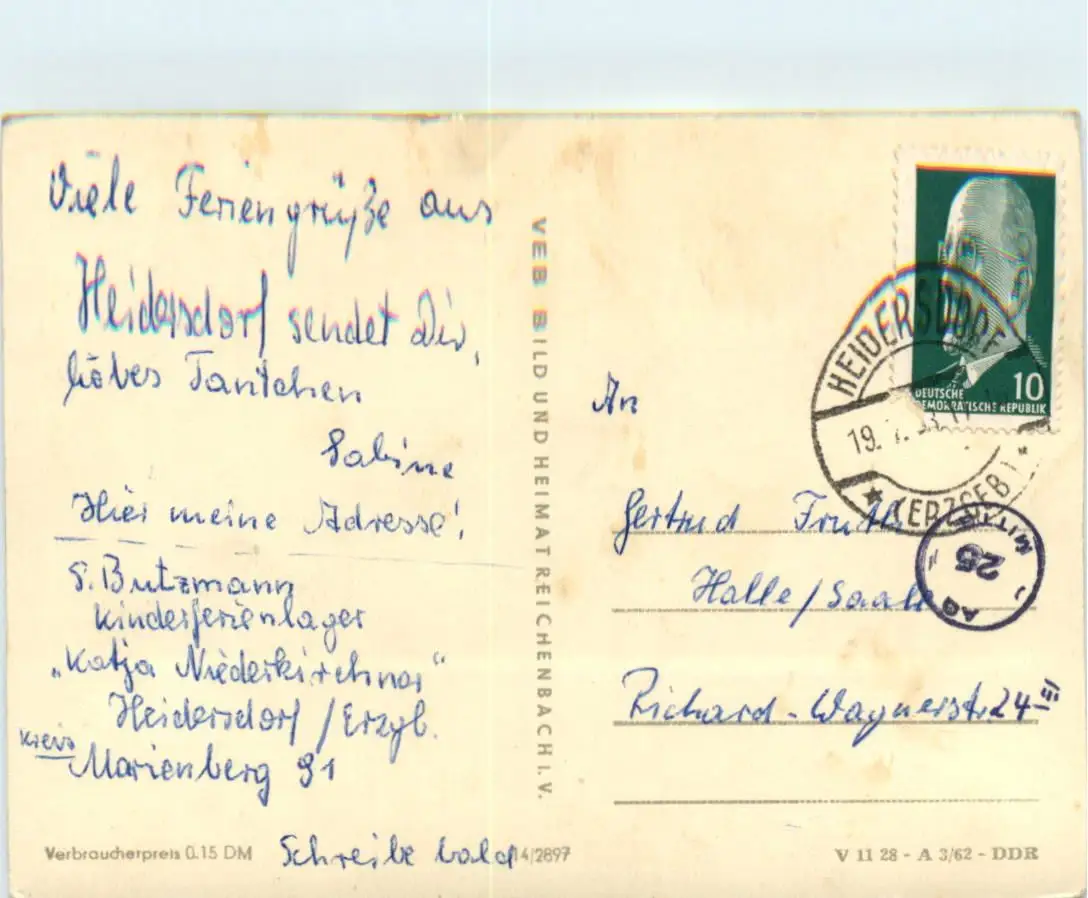 Viele Feriengrüße aus
Heidersdorf sendet Dir,
liebes Tantchen
Sabine
Hier meine Adresse!
S. Butzmann
Kinderferienlager
"Katja Niederkirchner"
Heidersdorf / Erzgb.
Kreis
Marienberg 91
Schreibe bald
Verbraucherpreis 0.15 DM
14/2897
VEB BILD UND HEIMAT REICHENBACH I. V.
DEUTSCHE
DEMOKRATISCHE REPUBLIK
10
HEIDERSDORF
19. 7.
(ERZGEB)
AG MITTE
25
An
Gertrud
Halle / Saale
Richard-Wagnerstr. 24
V 11 28 - A 3/62 - DDR